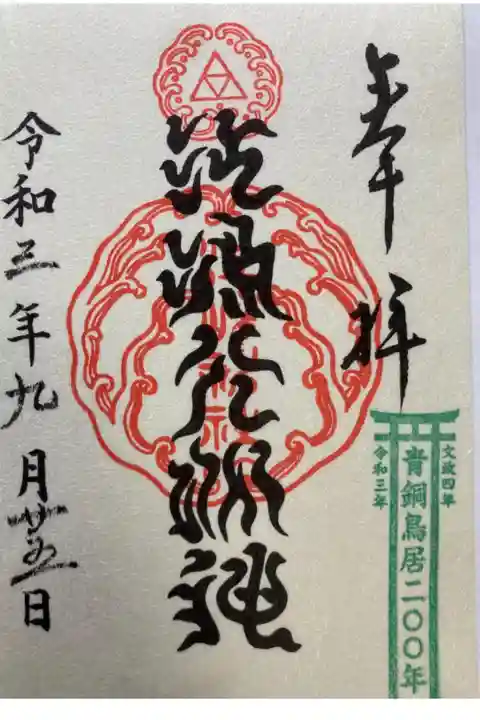 奉拝
江島大明神
令和三年九月廿五日
文政四年
青銅鳥居二〇〇年
令和三年